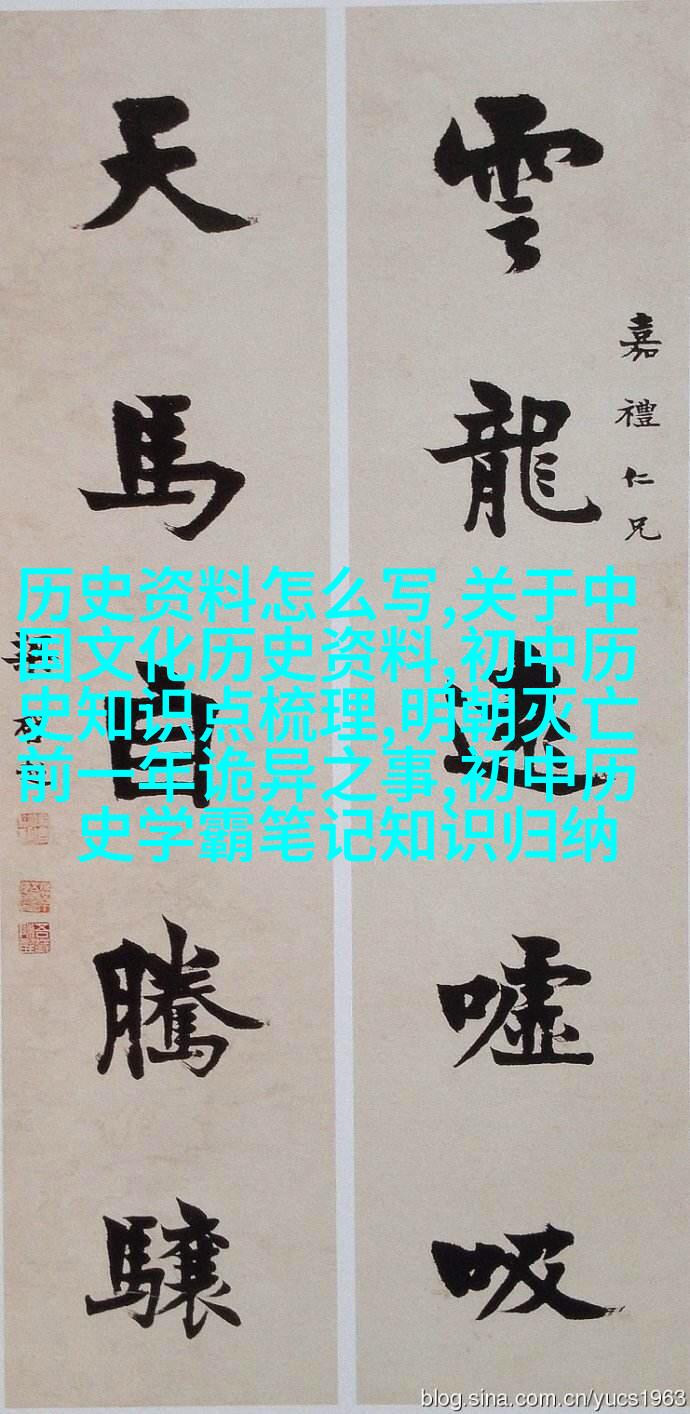 雲龍噓吸
嘉禮仁兄
天馬自騰驤
历史资料怎么写,关于中
国文化历史资料,初中历
史知识点梳理,明朝灭亡
前一年诡异之事,初中历
史学霸笔记知识归纳
blog.sina.com.cn/yucs1963